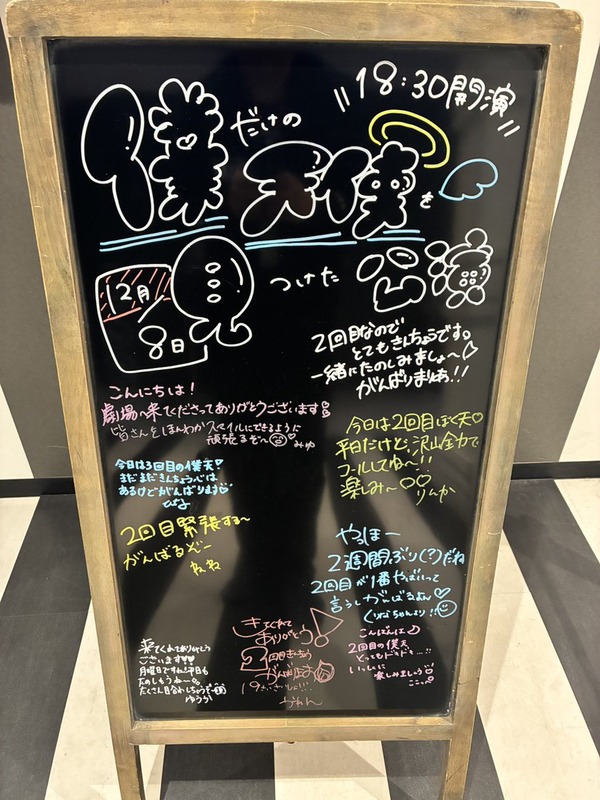 18:30開演
僕だけの
天使を
つけた
2月
8日
2回目なので
とてもきんちょうです。
一緒にたのしみましょ〜
がんばりまゆあ!!
こんにちは!
劇場へ来てくださってありがとうございます
皆さんをほんわかスマイルにできるように
頑張るぞ〜 みゆ
今日は2回目ぼく天♡
平日だけど、沢山全力で
コールしてね〜!!
楽しみ〜♡♡
りんか
今日は3回目の僕天!
まだまだきんちょう心は
あるけどがんばります♡
2回目緊張する〜
がんばるぞー
やっほー
2週間ぶり(?)だね
2回目が1番やばいって
言うしがんばるよん♡
くりねちゃんより!!
来てくれてありがとう
ございます♥
月曜日ですね。平日も
たのしもうね〜
ゆうか
きてくれて
ありがとう!
2回目
こんばんは♪
2回目の僕天
とってもドキドキ...!
いっしょに
楽しみましょう♡
ここっへ